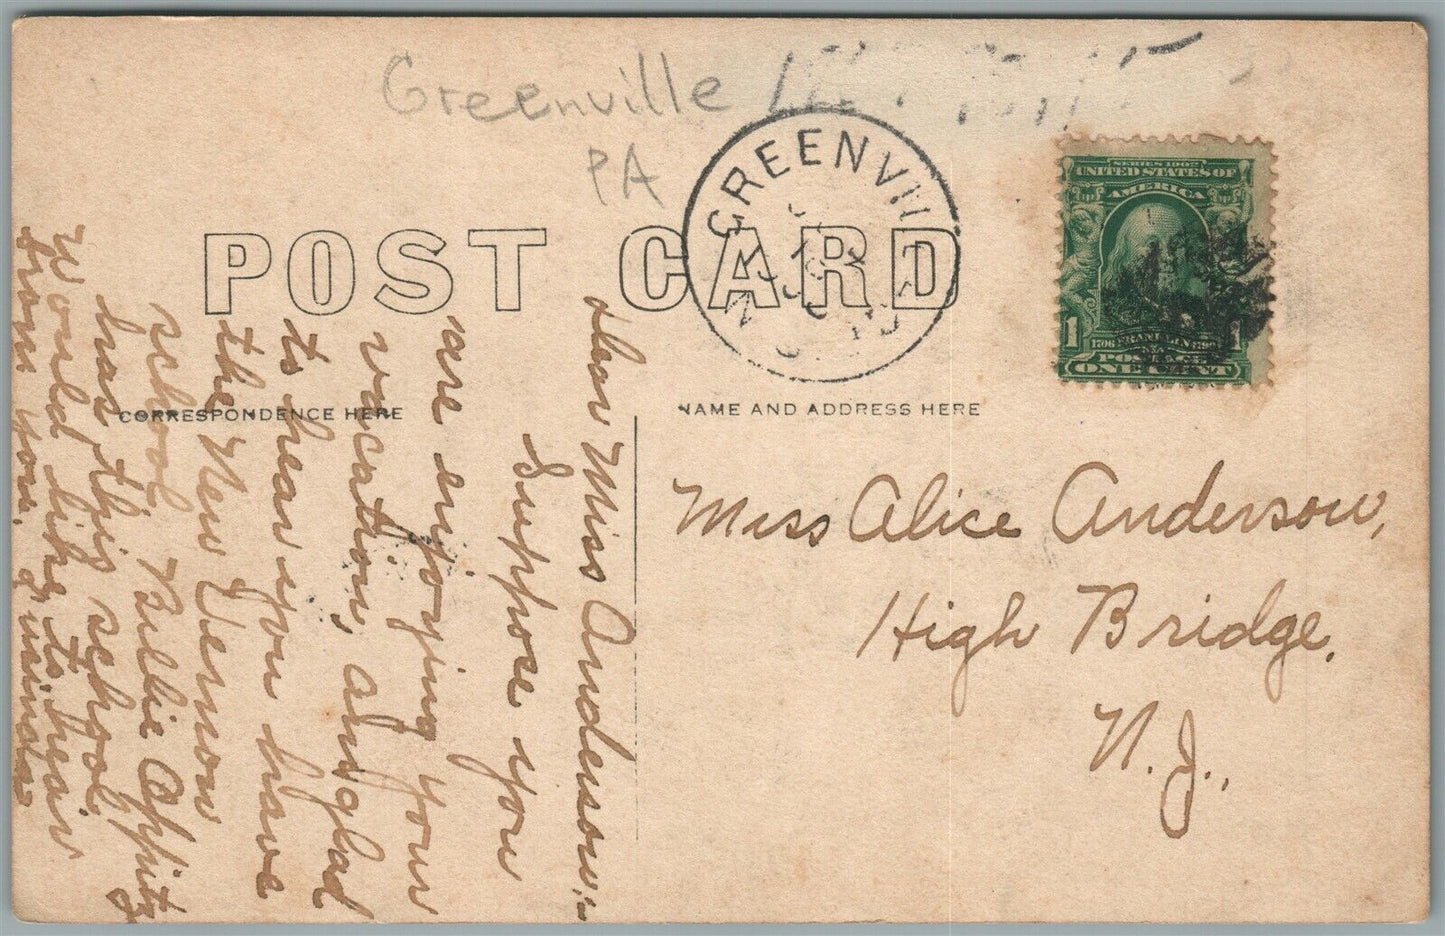 Greenville
PA
GREENVIL
POST CARD
SERIES 1902
UNITED STATES OF
AMERICA
1706 FRANKLIN 1790
POSTAGE
1 1
ONE CENT
CORRESPONDENCE HERE
NAME AND ADDRESS HERE
Dear Miss Anderson:-
Suppose you
are enjoying your
vacation, am glad
to hear you have
the New Vernon
school. Billie
has this school.
Would like to hear
from you.
Miss Alice Anderson,
High Bridge,
N.J.,